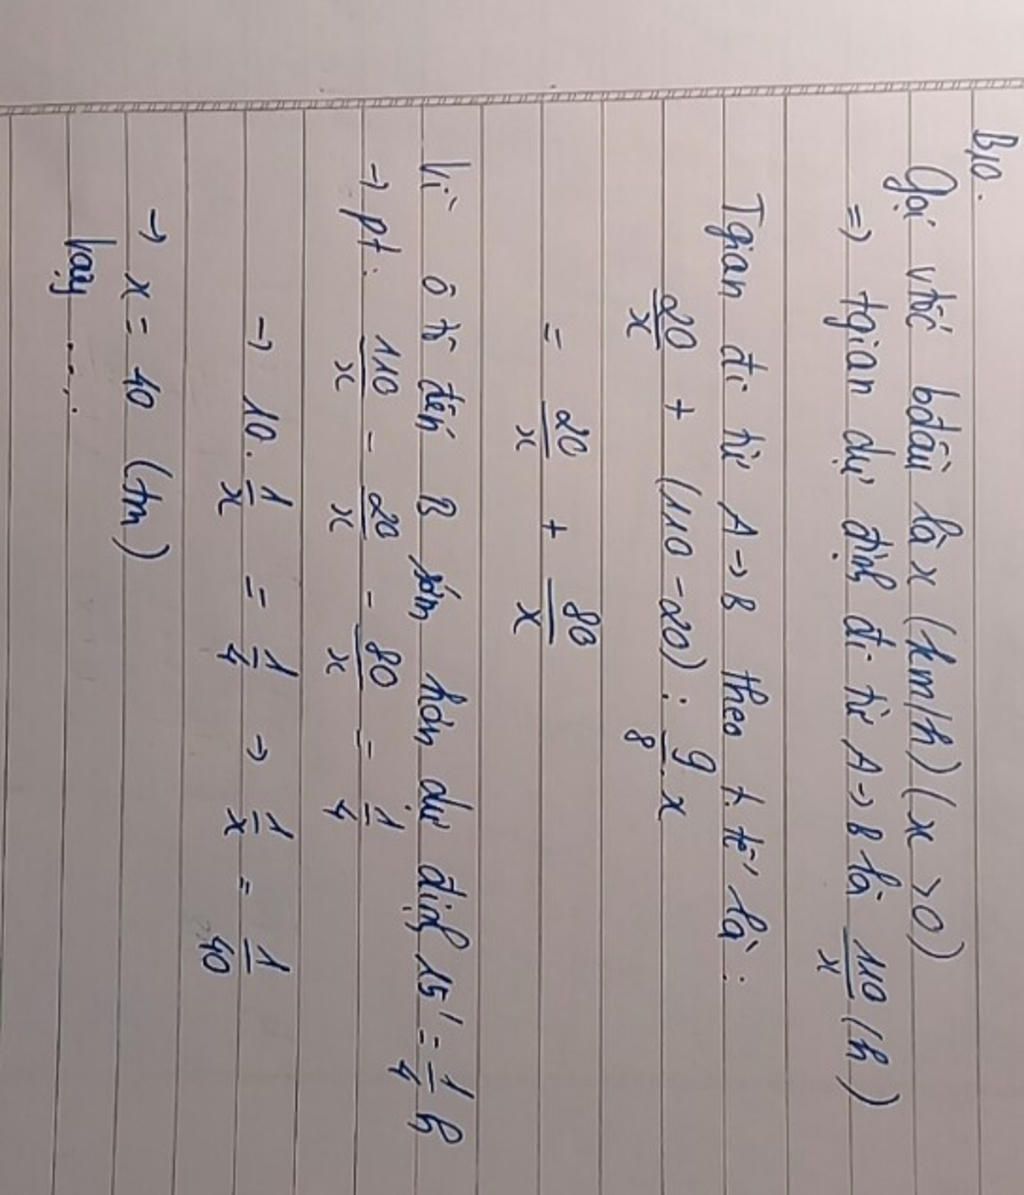 B10.
Gọi vtốc bđầu là x (km/h) (x > 0)
=> tgian dự định đi từ A → B là 110/x (h)
Tgian đi từ A → B theo t.tế là :
20/x + (110 - 20) : 9/8 . x
= 20/x + 80/x
Vì ô tô đến B sớm hơn dự định 15' = 1/4 h
→ pt : 110/x - 20/x - 80/x = 1/4
→ 10 . 1/x = 1/4 → 1/x = 1/40
→ x = 40 (tm)
Vậy .....